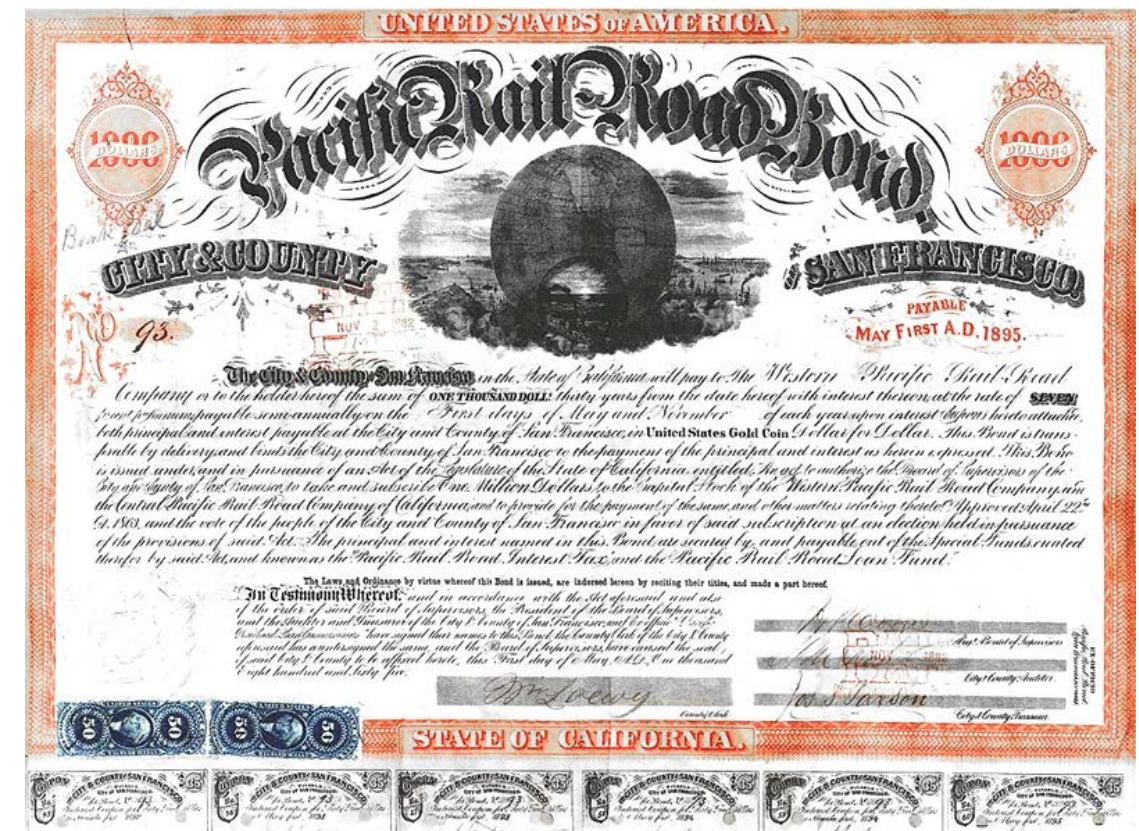 UNITED STATES OF AMERICA.
Pacific Rail Road Bond,
1000
DOLLARS
1000
DOLLARS
CITY & COUNTY
OF
SAN FRANCISCO.
No 93.
NOV 2 1892
PAYABLE
MAY FIRST A.D. 1895.
The City & County of San Francisco in the State of California will pay to The Western Pacific Rail Road
Company or to the holder hereof the sum of ONE THOUSAND DOLLS thirty years from the date hereof with interest thereon, at the rate of SEVEN
payable semi-annually on the First days of May and November of each year upon interest hereto attached,
both principal and interest payable at the City and County of San Francisco, in United States Gold Coin Dollar for Dollar. This Bond is trans-
ferable by delivery, and binds the City and County of San Francisco to the payment of the principal and interest as herein expressed. This Bond
is issued under, and in pursuance of an Act of the Legislature of the State of California, entitled, An act to authorize the Board of Supervisors of the
City and County of San Francisco, to take and subscribe One Million Dollars to the Capital Stock of the Western Pacific Rail Road Company, and
the Central Pacific Rail Road Company of California, and to provide for the payment of the same, and other matters relating thereto. Approved April 22nd
1863, and the vote of the people of the City and County of San Francisco in favor of said subscription at an election held in pursuance
of the provisions of said Act. The principal and interest named in this Bond are secured by, and payable out of the Special Funds, created
therefor by said Act, and known as the "Pacific Rail Road Interest Tax", and the Pacific Rail Road Loan Fund".
The Laws and Ordinance by virtue whereof this Bond is issued, are indorsed hereon by reciting their titles, and made a part hereof.
In Testimony Whereof, and in accordance with the Act aforesaid and also
of the order of said Board of Supervisors, the President of the Board of Supervisors,
and the Auditor and Treasurer of the City & County of San Francisco, and Ex officio Pacific
Railroad Loan Commissioners have signed their names to this Bond, the County Clerk of the City & County
aforesaid has countersigned the same, and the Board of Supervisors, have caused the seal
of said City & County to be affixed hereto, this First day of May, A.D. One thousand
Eight hundred and sixty five.
Wm Loewy
County Clerk
President of Supervisors
NOV 2 1892
City & County Auditor.
Jos S Paxson
City & County Treasurer.
EX-OFFICIO
Pacific Rail Road
Loan Commissioners
50
50
50
50
STATE OF CALIFORNIA.
COUPON CITY & COUNTY SAN FRANCISCO $35
COUPON CITY & COUNTY SAN FRANCISCO $35
COUPON CITY & COUNTY SAN FRANCISCO $35
COUPON CITY & COUNTY SAN FRANCISCO $35
COUPON CITY & COUNTY SAN FRANCISCO $35
COUPON CITY & COUNTY SAN FRANCISCO $35